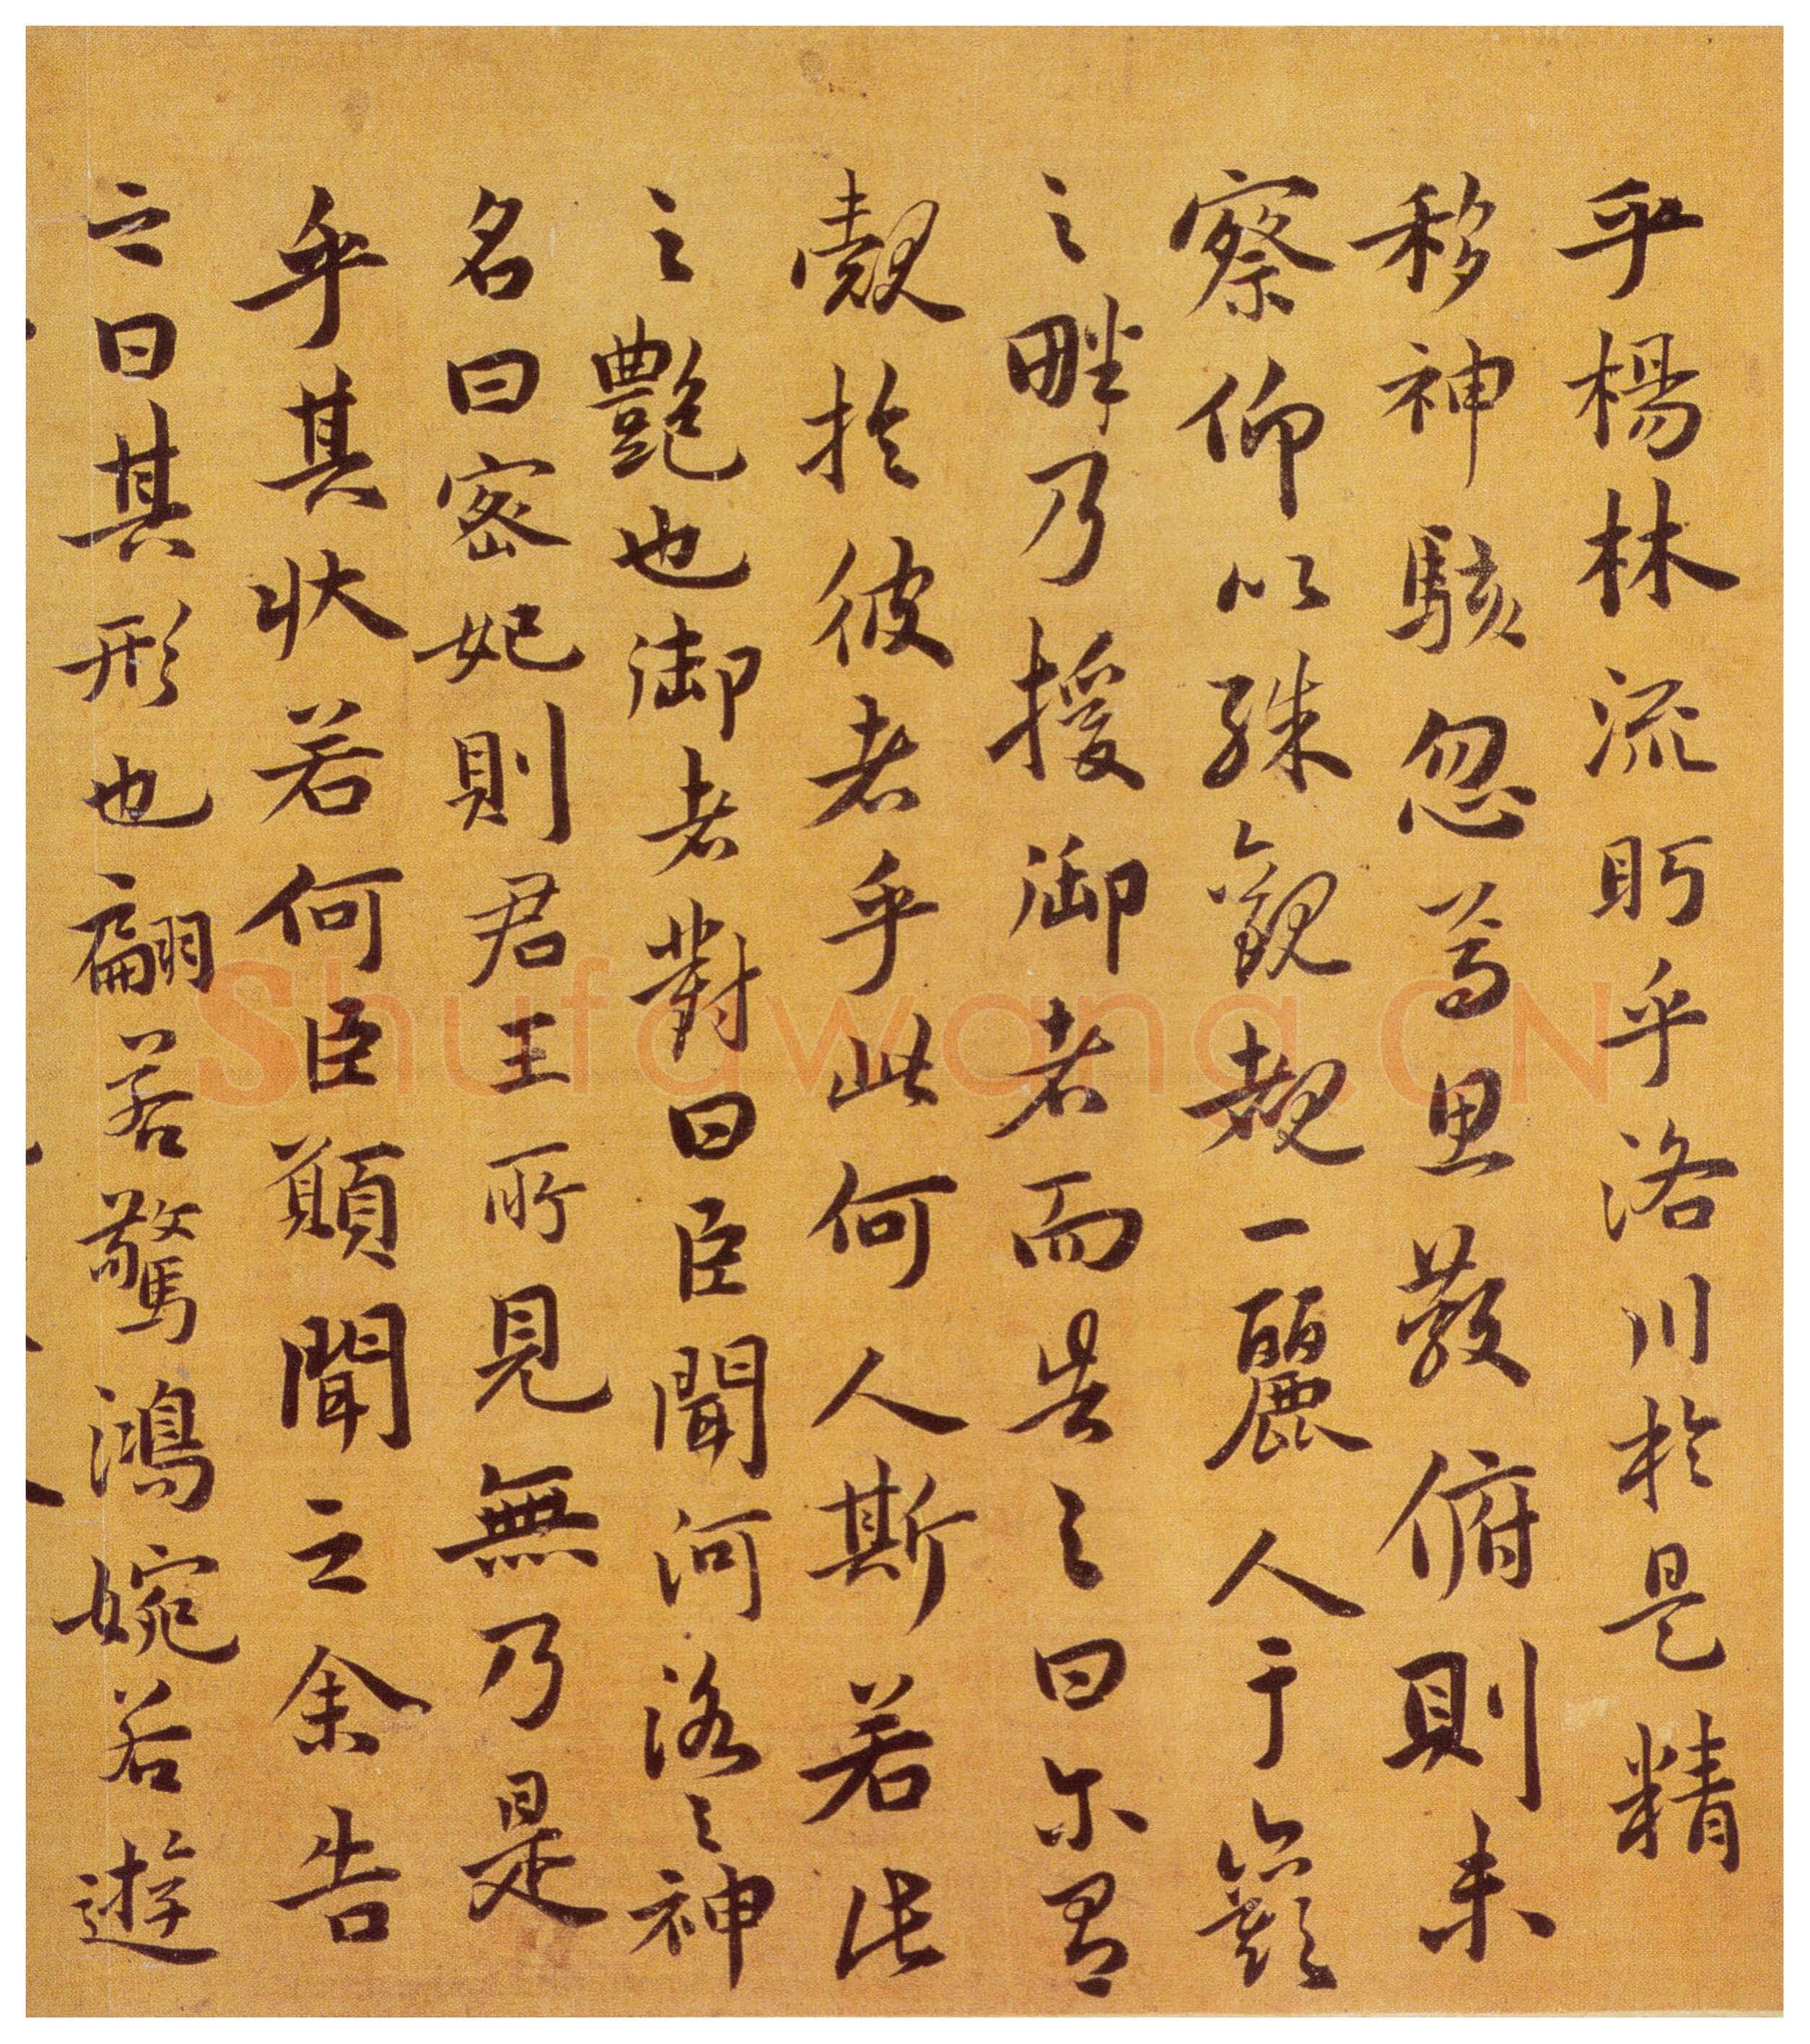 乎楊林流眄乎洛川於是精
移神駭忽焉思散俯則未
察仰以殊觀覩一麗人于巖
之畔乃援御者而告之曰尓有
覿於彼者乎此何人斯若此
之艷也御者對曰臣聞河洛之神
名曰密妃則君王所見無乃是
乎其状若何臣願聞之余告
之曰其形也翩若驚鴻婉若遊
Shufawang.CN